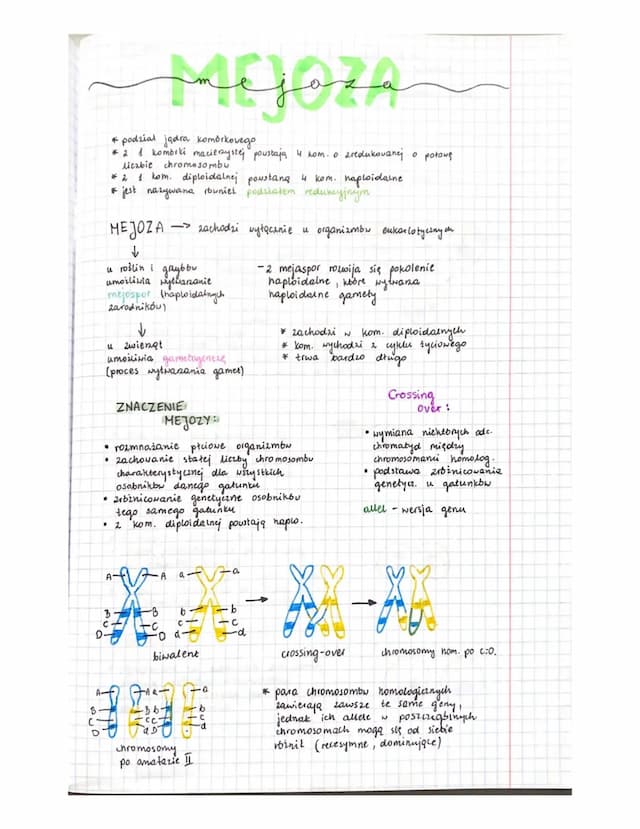 MEJOZA
mejoza
* podział jądra komórkowego
* z 1 komórki macierzystej powstają 4 kom. o zredukowanej o połowę
liczbie chromosomów
* z 1 kom. diploidalnej powstaną 4 kom. haploidalne
* jest nazywana również podziałem redukcyjnym
MEJOZA → zachodzi wyłącznie u organizmów eukariotycznych
↓
u roślin i grzybów
umożliwia wytwarzanie
mejospor (haploidalnych
zarodników)
- z mejospor rozwija się pokolenie
haploidalne, które wytwarza
haploidalne gamety
↓
u zwierząt
umożliwia gametogenezę
(proces wytwarzania gamet)
* zachodzi w kom. diploidalnych
* kom. wychodzi z cyklu życiowego
* trwa bardzo długo
ZNACZENIE
MEJOZY:
• rozmnażanie płciowe organizmów
• zachowanie stałej liczby chromosomów
charakterystycznej dla wszystkich
osobników danego gatunku
• zróżnicowanie genetyczne osobników
tego samego gatunku
• z kom. diploidalnej powstają haplo.
Crossing
over:
• wymiana niektórych odc.
chromatyd między
chromosomami homolog.
• podstawa zróżnicowania
genetycz. u gatunków
allel - wersja genu
A A a a
B B b b
C C c c
D D d d
biwalent
crossing-over
chromosomy hom. po c.o.
A A a a
B B b b
C c C c
D d D d
chromosomy
po anafazie II
* para chromosomów homologicznych
zawierają zawsze te same geny,
jednak ich allele w poszczególnych
chromosomach mogą się od siebie
różnić (recesywne, dominujące)